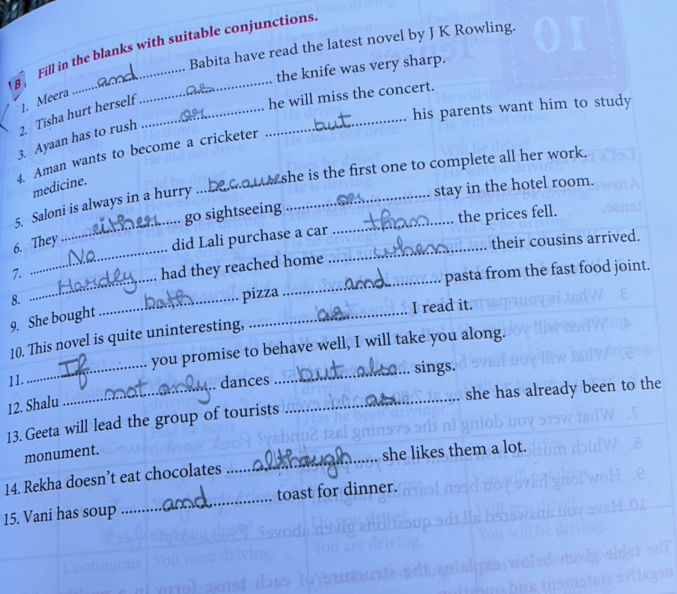 B Fill in the blanks with suitable conjunctions.
1. Meera and Babita have read the latest novel by J K Rowling.
2. Tisha hurt herself as the knife was very sharp.
3. Ayaan has to rush or he will miss the concert.
4. Aman wants to become a cricketer but his parents want him to study
medicine.
5. Saloni is always in a hurry because she is the first one to complete all her work.
6. They either go sightseeing or stay in the hotel room.
7. No did Lali purchase a car than the prices fell.
8. Hardly had they reached home when their cousins arrived.
9. She bought both pizza and pasta from the fast food joint.
10. This novel is quite uninteresting, I read it.
11. If you promise to behave well, I will take you along.
12. Shalu not only dances but also sings.
13. Geeta will lead the group of tourists as she has already been to the
monument.
14. Rekha doesn't eat chocolates although she likes them a lot.
15. Vani has soup and toast for dinner.